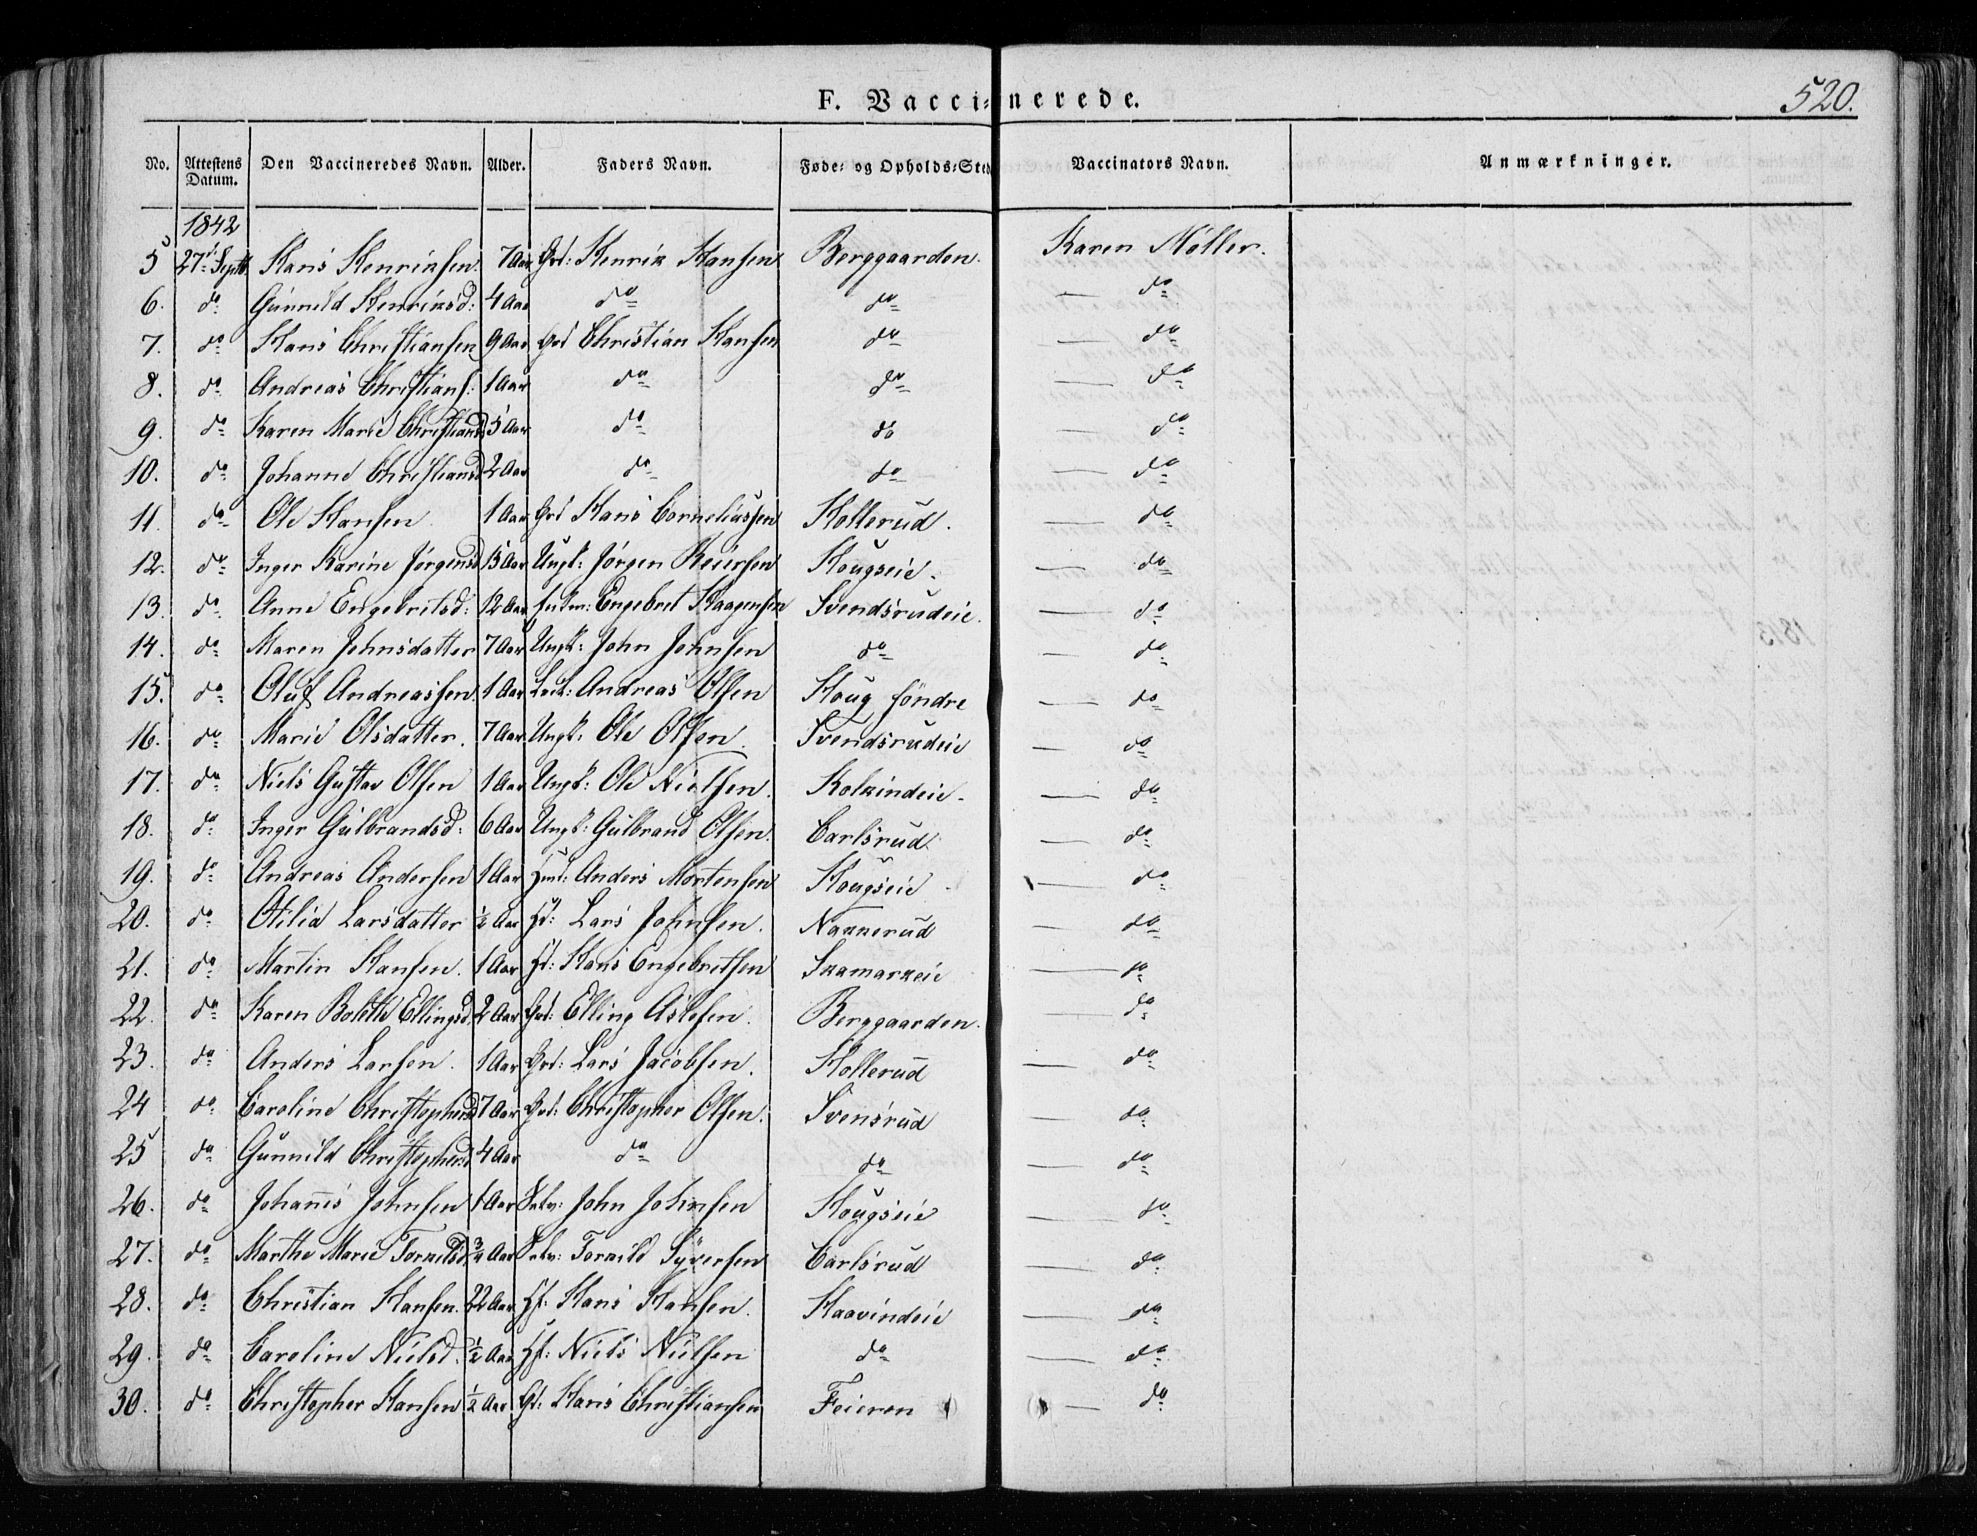 520.
F. Vaccinerede.
No. Attestens Datum. Den Vaccineredes Navn. Alder. Faders Navn. Føde- og Opholds-Sted Vaccinators Navn. Anmærkninger.
1842
5 27de Septb. Hans Henriksen. 7 Aar Grd: Henrik Hansen Berggaarden. Karen Møller.
6. do Gunnild Henriksd: 4 Aar do do — do
7. do Hans Christiansen 9 Aar Grd Christian Hansen do — do
8. do Andreas Christians: 1 Aar do do — do
9. do Karen Marie Christiansd 5 Aar do do — do
10. do Johanne Christiansd 2 Aar do do — do
11. do Ole Hansen 1 Aar Grd Hans Corneliussen Hollerud. — do
12. do Inger Karine Jørgensd 15 Aar Ungk: Jørgen Reiersen Hougseie. — do
13. do Anne Engebretsd: 12 Aar Engebret Haagensen Svendsrudeie. — do
14. do Maren Johnsdatter 7 Aar Ungk: John Johnsen do — do
15. do Oluf Andreassen 1 Aar Andreas Olsen Houg søndre — do
16. do Marie Olsdatter. 7 Aar Ungk: Ole Olsen. Svendsrudeie — do
17. do Niels Gustav Olsen 1 Aar Ungk: Ole Nielsen. Kolkindeie. — do
18. do Inger Gulbrandsd: 6 Aar Ungk: Gulbrand Olsen. Carlsrud. — do
19. do Andreas Andersen 1 Aar Anders Mortensen Hougseie — do
20. do Otilia Larsdatter ½ Aar Lars Johnsen. Nakkerud — do
21. do Martin Hansen. 1 Aar Hans Engebretsen Skamarkeie — do
22. do Karen Bolette Ellingsd. 2 Aar Grd: Elling Aslesen. Berggaarden. — do
23. do Anders Larsen. 1 Aar Grd: Lars Jacobsen. Hollerud — do
24 do Caroline Christophersd 7 Aar Grd: Christopher Olsen. Svensrud — do
25 do Gunnild Christophersd 4 Aar do do — do
26. do Johannes Johnsen 1 Aar John Johnsen Hougseie — do
27. do Marthe Marie Torkildsd. ¾ Aar Torkild Syversen Carlsrud — do
28. do Christian Hansen. 22 Aar Hf: Hans Hansen. Haavindeie — do
29. do Caroline Nielsd. ½ Aar Hf: Niels Nielsen do — do
30. do Christopher Hansen ½ Aar Gd: Hans Christiansen Feieren — do